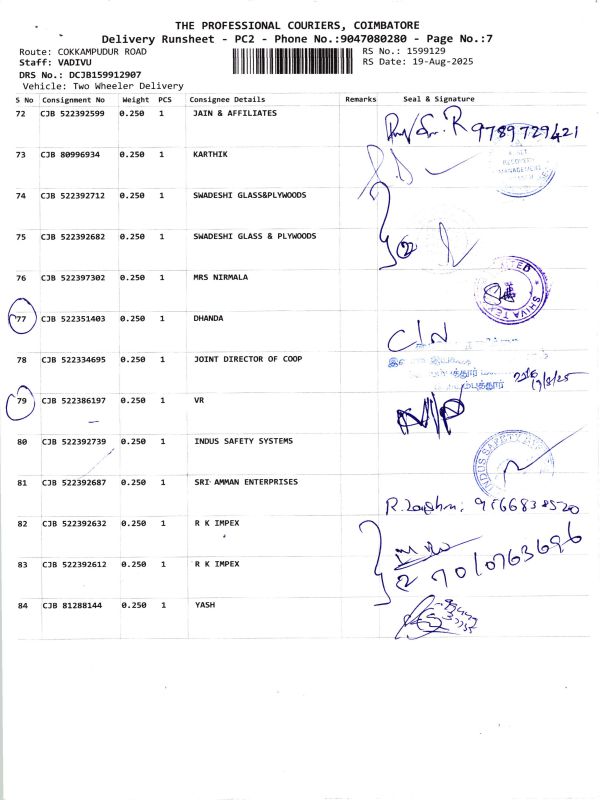 THE PROFESSIONAL COURIERS, COIMBATORE
Delivery Runsheet - PC2 - Phone No.:9047080280 - Page No.:7
Route: COKKAMPUDUR ROAD
RS No.: 1599129
Staff: VADIVU
RS Date: 19-Aug-2025
DRS No.: DCJB159912907
Vehicle: Two Wheeler Delivery
S No Consignment No Weight PCS Consignee Details Remarks Seal & Signature
72 CJB 522392599 0.250 1 JAIN & AFFILIATES
9789729421
73 CJB 80996934 0.250 1 KARTHIK
RECOVERY
MANAGEMENT
74 CJB 522392712 0.250 1 SWADESHI GLASS&PLYWOODS
75 CJB 522392682 0.250 1 SWADESHI GLASS & PLYWOODS
2
76 CJB 522397302 0.250 1 MRS NIRMALA
SHIVA TEX
77 CJB 522351403 0.250 1 DHANDA
78 CJB 522334695 0.250 1 JOINT DIRECTOR OF COOP
19/8/25
79 CJB 522386197 0.250 1 VR
80 CJB 522392739 0.250 1 INDUS SAFETY SYSTEMS
INDUS SAFETY
81 CJB 522392687 0.250 1 SRI AMMAN ENTERPRISES
82 CJB 522392632 0.250 1 R K IMPEX
2 7010763696
83 CJB 522392612 0.250 1 R K IMPEX
84 CJB 81288144 0.250 1 YASH